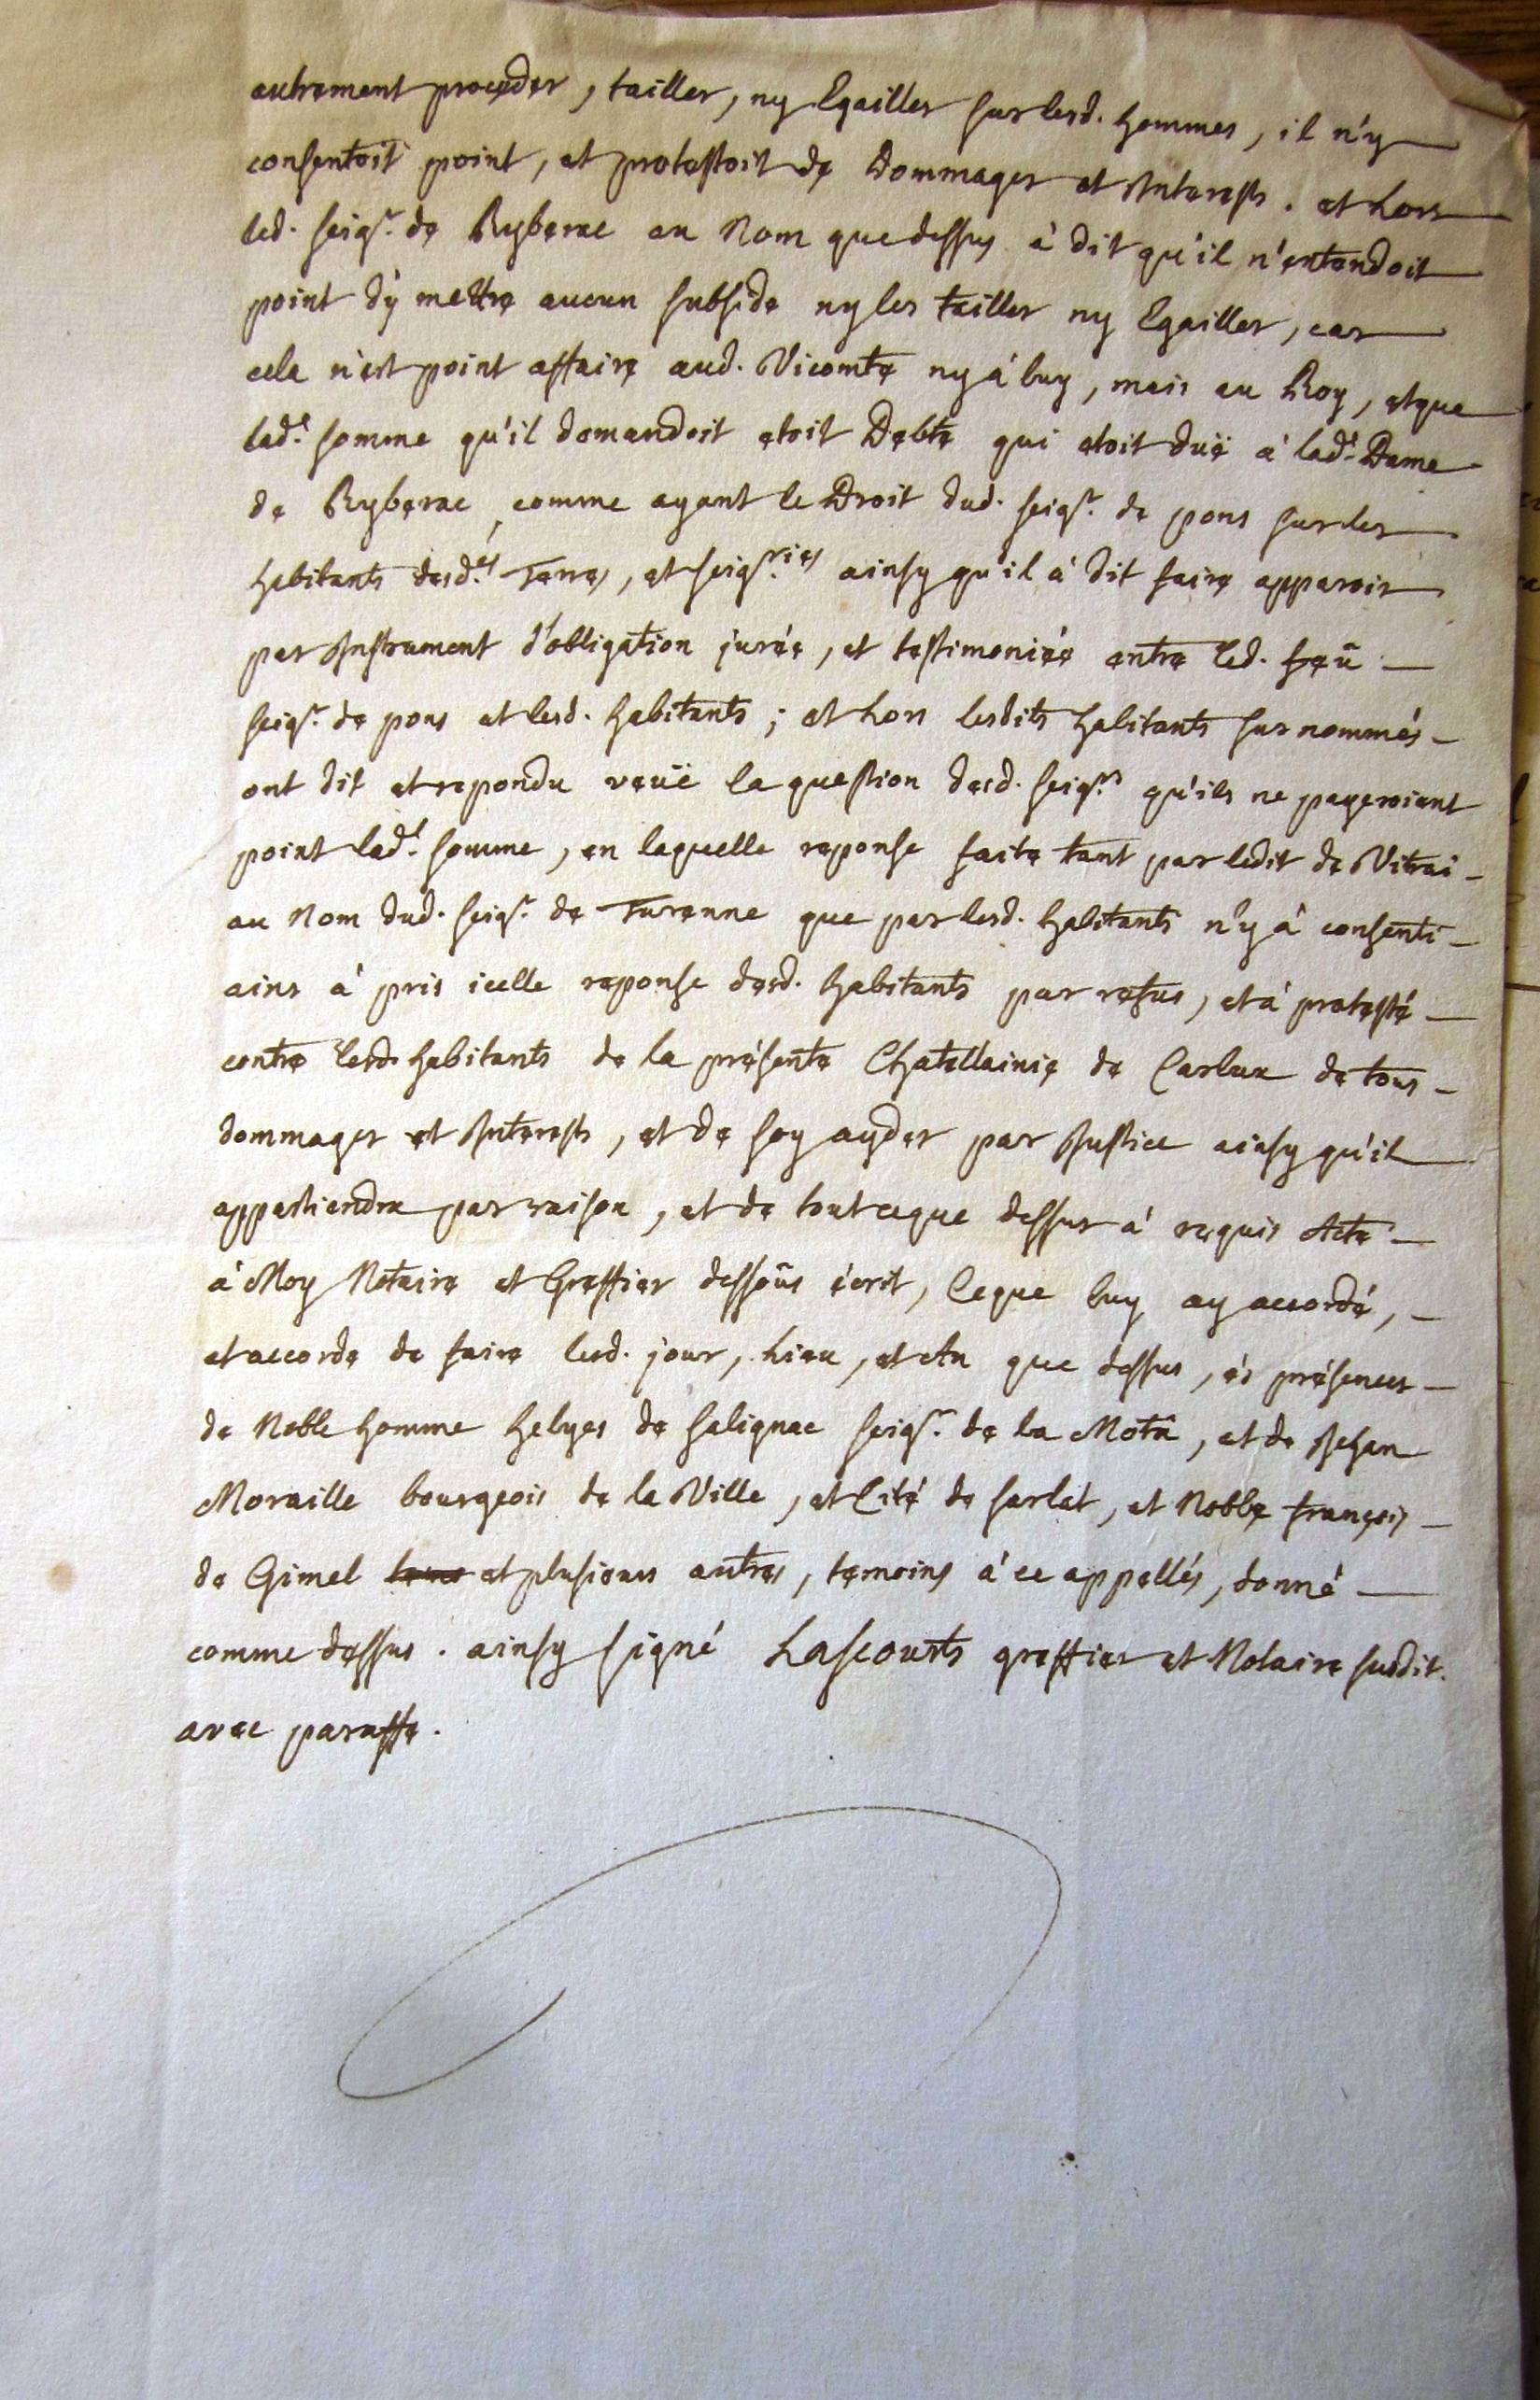 autrement proceder, tailler, ny Egailler sur lesd. hommes, il n'y
consentoit point, et protestoit de Dommages et Interests. et Lors
led. seigr. de Ryberac au Nom que dessus à dit qu'il n'entendoit
point d'y mettre aucun subside ny les tailler ny Egailler, car
cela n'est point affaire aud. Vicomte ny à luy, mais au Roy, et que
lade. somme qu'il demandoit etoit Debte qui etoit duë à lade. Dame
de Ryberac, comme ayant le Droit dud. seigr. de pons sur les
habitants desdes. Terres, et seigries. ainsy qu'il à dit faire apparoir
par Instrument d'obligation jurée, et testimoniée entre led. feu
seigr. de pons et lesd. habitants; et Lors lesdits habitants sur nommés
ont dit et repondu veuë la question desd. seigrs. qu'ils ne payeroient
point lade. somme, en laquelle reponse faite tant par ledit de Vitrai
au Nom dud. seigr. de Turenne que par lesd. habitants n'y à consenti
ains à pris icelle reponse desd. habitants par refus, et à protesté
contre lesd. habitants de la présente Chatellainie de Carlux de tous
dommages et Interests, et de soy ayder par Justice ainsy qu'il
appartiendra par raison, et de tout ce que dessus à requis Acte
à Moy Notaire et Greffier dessous écrit, Ce que luy ay accordé,
et accorde de faire lesd. jour, Lieu, et An que dessus, és présences
de Noble homme helyes de salignac seigr. de la Mota, et de Jehan
Moraille bourgeois de la Ville, et Cité de sarlat, et Noble françois
de Gimel et plusieurs autres, temoins à ce appellés, donné
comme dessus. ainsy signé Lascourts greffier et Notaire susdit.
avec paraffe.